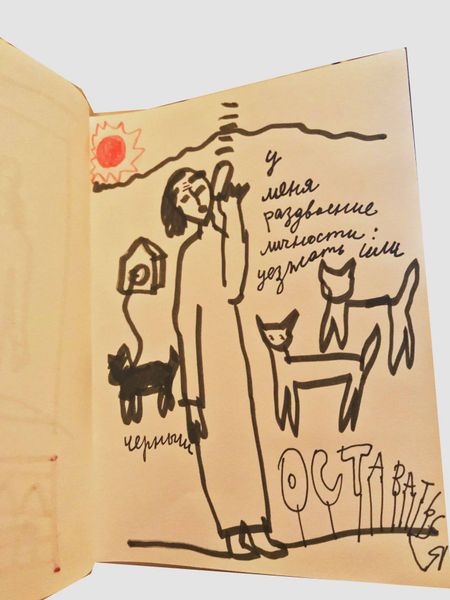 у
меня
раздвоение
личности:
уезжать или
черный
ОСТАВАТЬСЯ